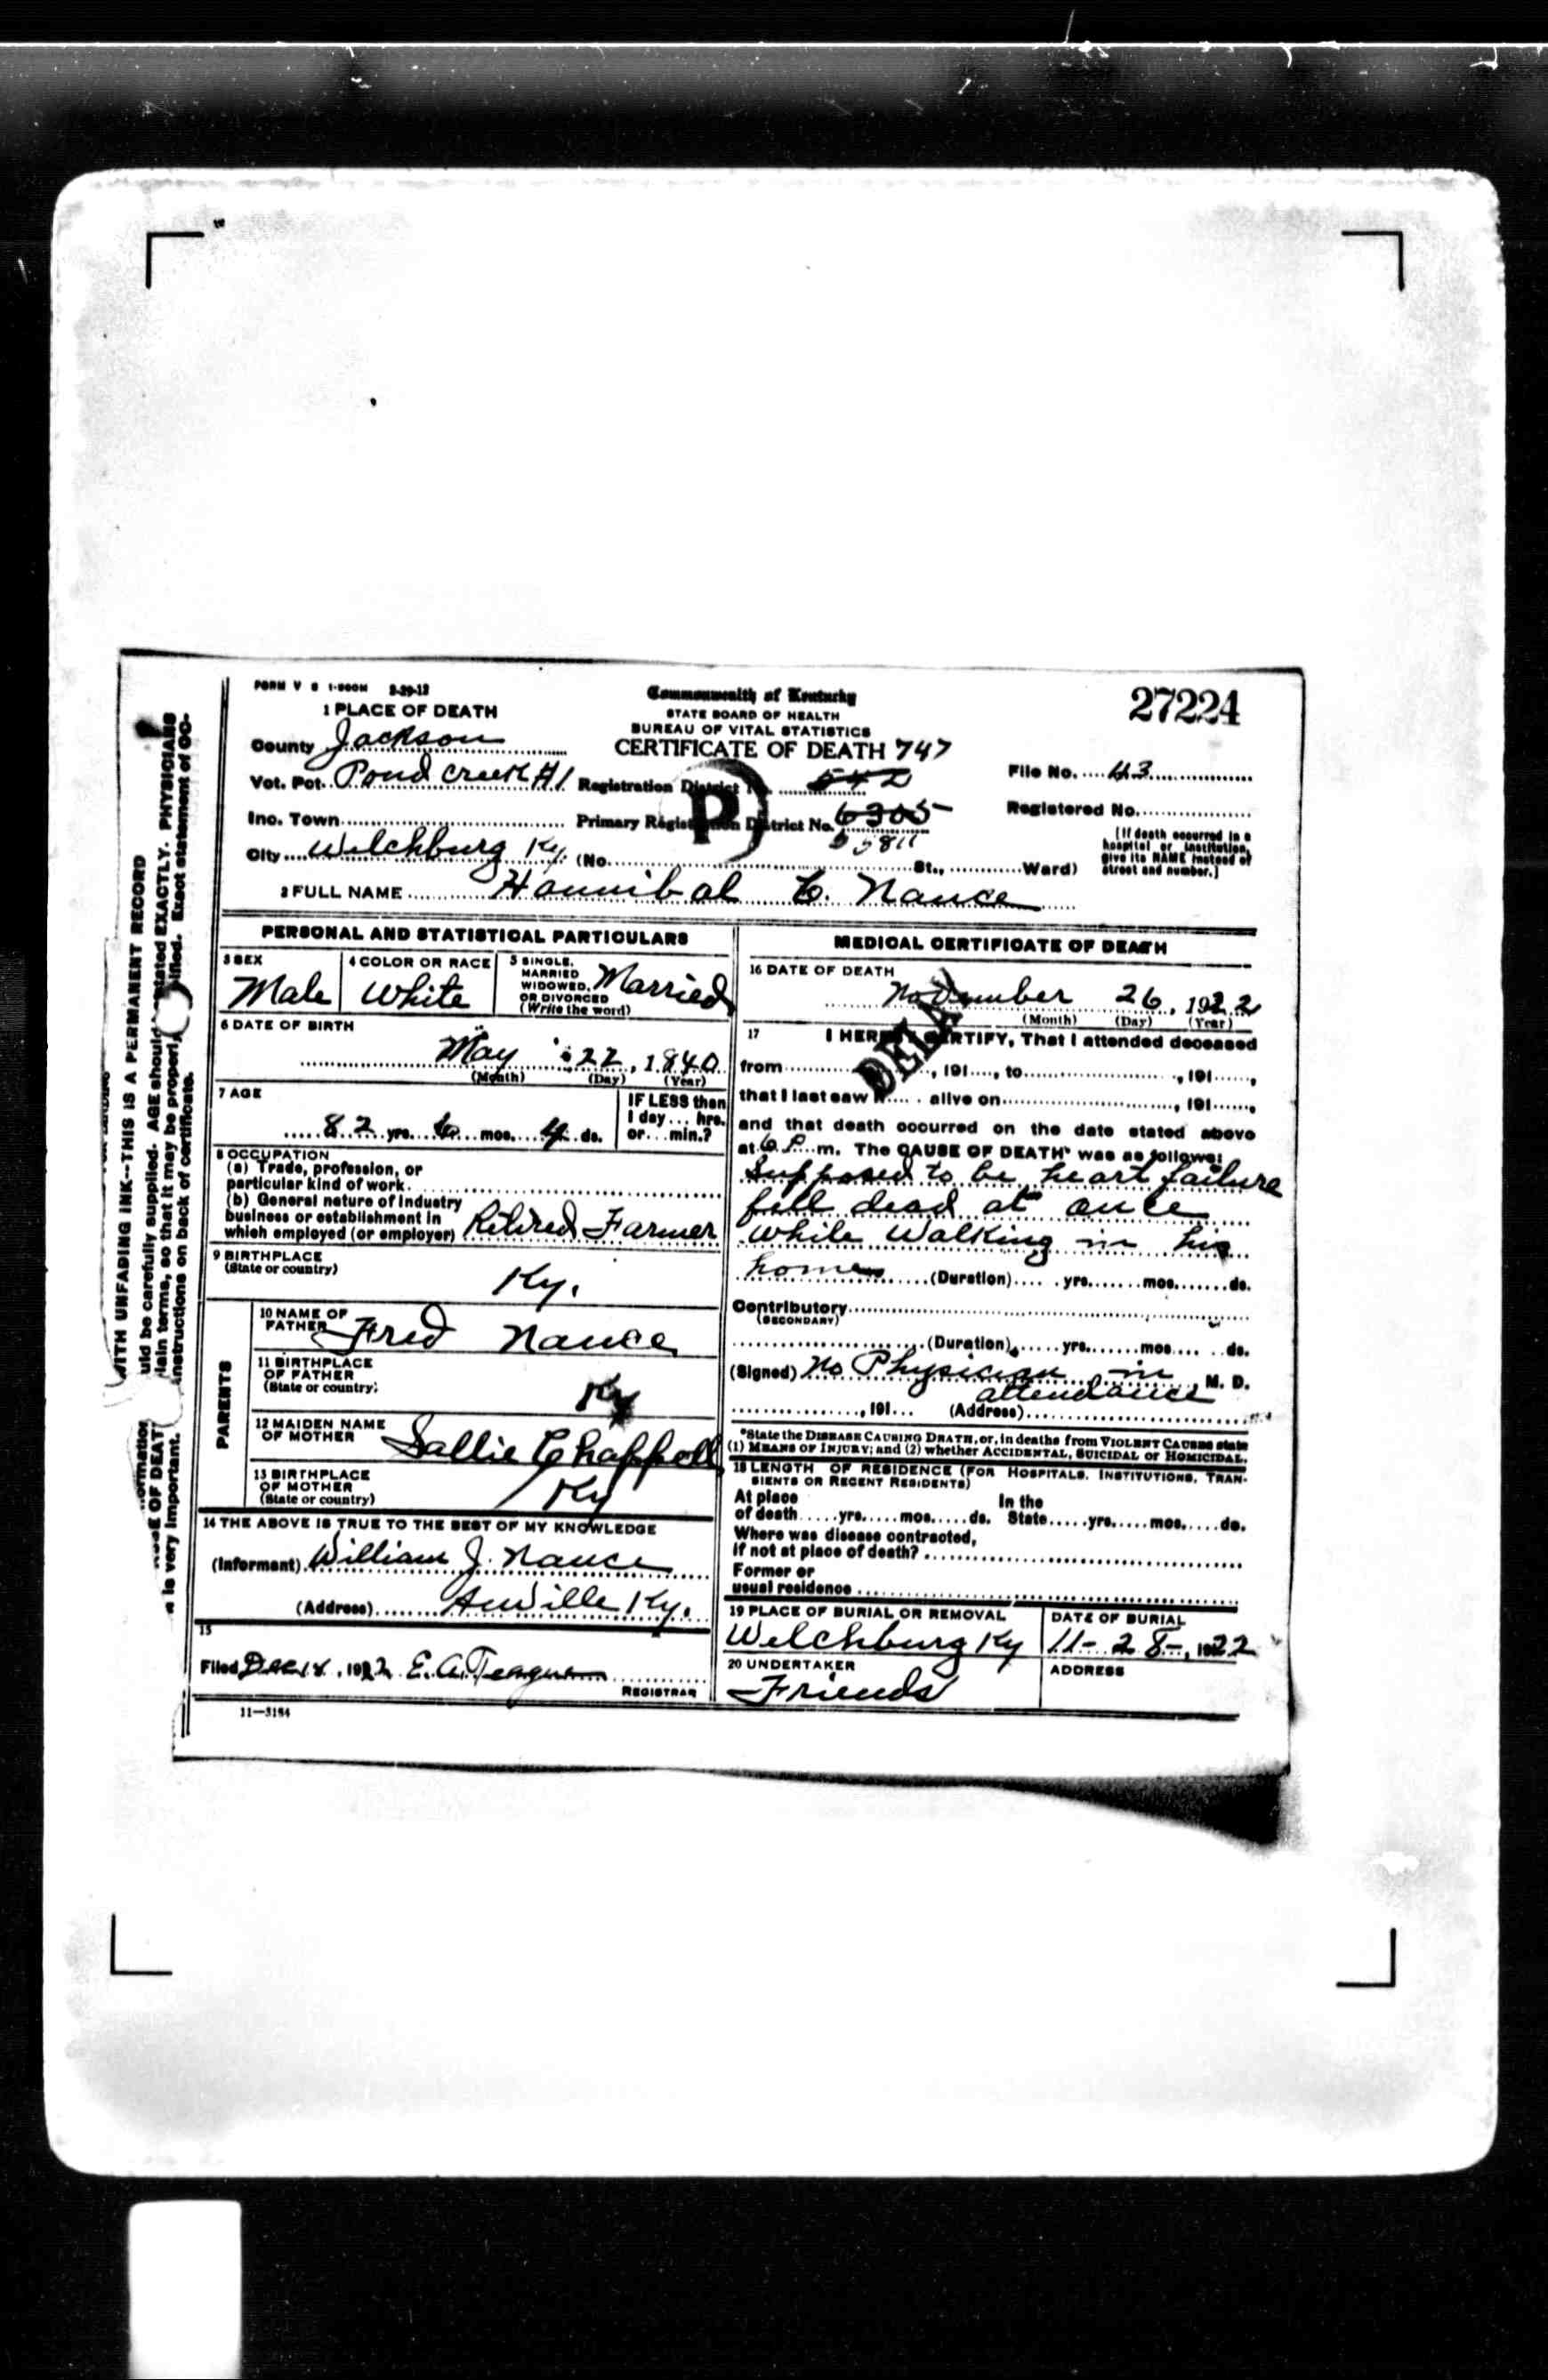 FORM V S 1-500M 3-29-12
1 PLACE OF DEATH
Commonwealth of Kentucky
STATE BOARD OF HEALTH
BUREAU OF VITAL STATISTICS
CERTIFICATE OF DEATH 747
27224
County Jackson
Vot. Pct. Pond Creek #1 Registration District No. 542
File No. 43
Inc. Town Primary Registration District No. 6305
Registered No.
5581
City Welchburg Ky. (No. St., Ward)
[If death occurred in a
hospital or institution,
give its NAME instead of
street and number.]
2 FULL NAME Hannibal C. Nance
PERSONAL AND STATISTICAL PARTICULARS
3 SEX Male
4 COLOR OR RACE White
5 SINGLE,
MARRIED
WIDOWED,
OR DIVORCED
(Write the word) Married
6 DATE OF BIRTH
May 22, 1840
(Month) (Day) (Year)
7 AGE
82 yrs. 6 mos. 4 ds.
IF LESS than
1 day ... hrs.
or ... min.?
8 OCCUPATION
(a) Trade, profession, or
particular kind of work
(b) General nature of industry
business or establishment in
which employed (or employer) Retired Farmer
9 BIRTHPLACE
(State or country)
Ky.
PARENTS
10 NAME OF
FATHER Fred Nance
11 BIRTHPLACE
OF FATHER
(State or country)
Ky
12 MAIDEN NAME
OF MOTHER Sallie Chappell
13 BIRTHPLACE
OF MOTHER
(State or country) Ky
14 THE ABOVE IS TRUE TO THE BEST OF MY KNOWLEDGE
(Informant) William J. Nance
(Address) Annville Ky.
15
Filed Dec 18, 1922 E. A. Teague
REGISTRAR
11-3184
MEDICAL CERTIFICATE OF DEATH
16 DATE OF DEATH
November 26, 1922
(Month) (Day) (Year)
P
DELAY
17 I HEREBY CERTIFY, That I attended deceased
from , 191 , to , 191 ,
that I last saw h alive on , 191 ,
and that death occurred on the date stated above
at 6 P. m. The CAUSE OF DEATH* was as follows:
Supposed to be heart failure
fell dead at once
while Walking in his
home (Duration) yrs. mos. ds.
Contributory
(SECONDARY)
(Duration) yrs. mos. ds.
(Signed) No Physician in M. D.
attendance
, 191 (Address)
*State the DISEASE CAUSING DEATH, or, in deaths from VIOLENT CAUSES state
(1) MEANS OF INJURY; and (2) whether ACCIDENTAL, SUICIDAL or HOMICIDAL.
18 LENGTH OF RESIDENCE (FOR HOSPITALS, INSTITUTIONS, TRAN-
SIENTS OR RECENT RESIDENTS)
At place In the
of death yrs. mos. ds. State yrs. mos. ds.
Where was disease contracted,
if not at place of death?
Former or
usual residence
19 PLACE OF BURIAL OR REMOVAL
Welchburg Ky
DATE OF BURIAL
11-28-, 1922
20 UNDERTAKER
Friends
ADDRESS
WITH UNFADING INK--THIS IS A PERMANENT RECORD
uld be carefully supplied. AGE should stated EXACTLY. PHYSICIANS
lain terms, so that it may be properl ified. Exact statement of OC-
nstructions on back of certificate.
OF DEAT
is very important.